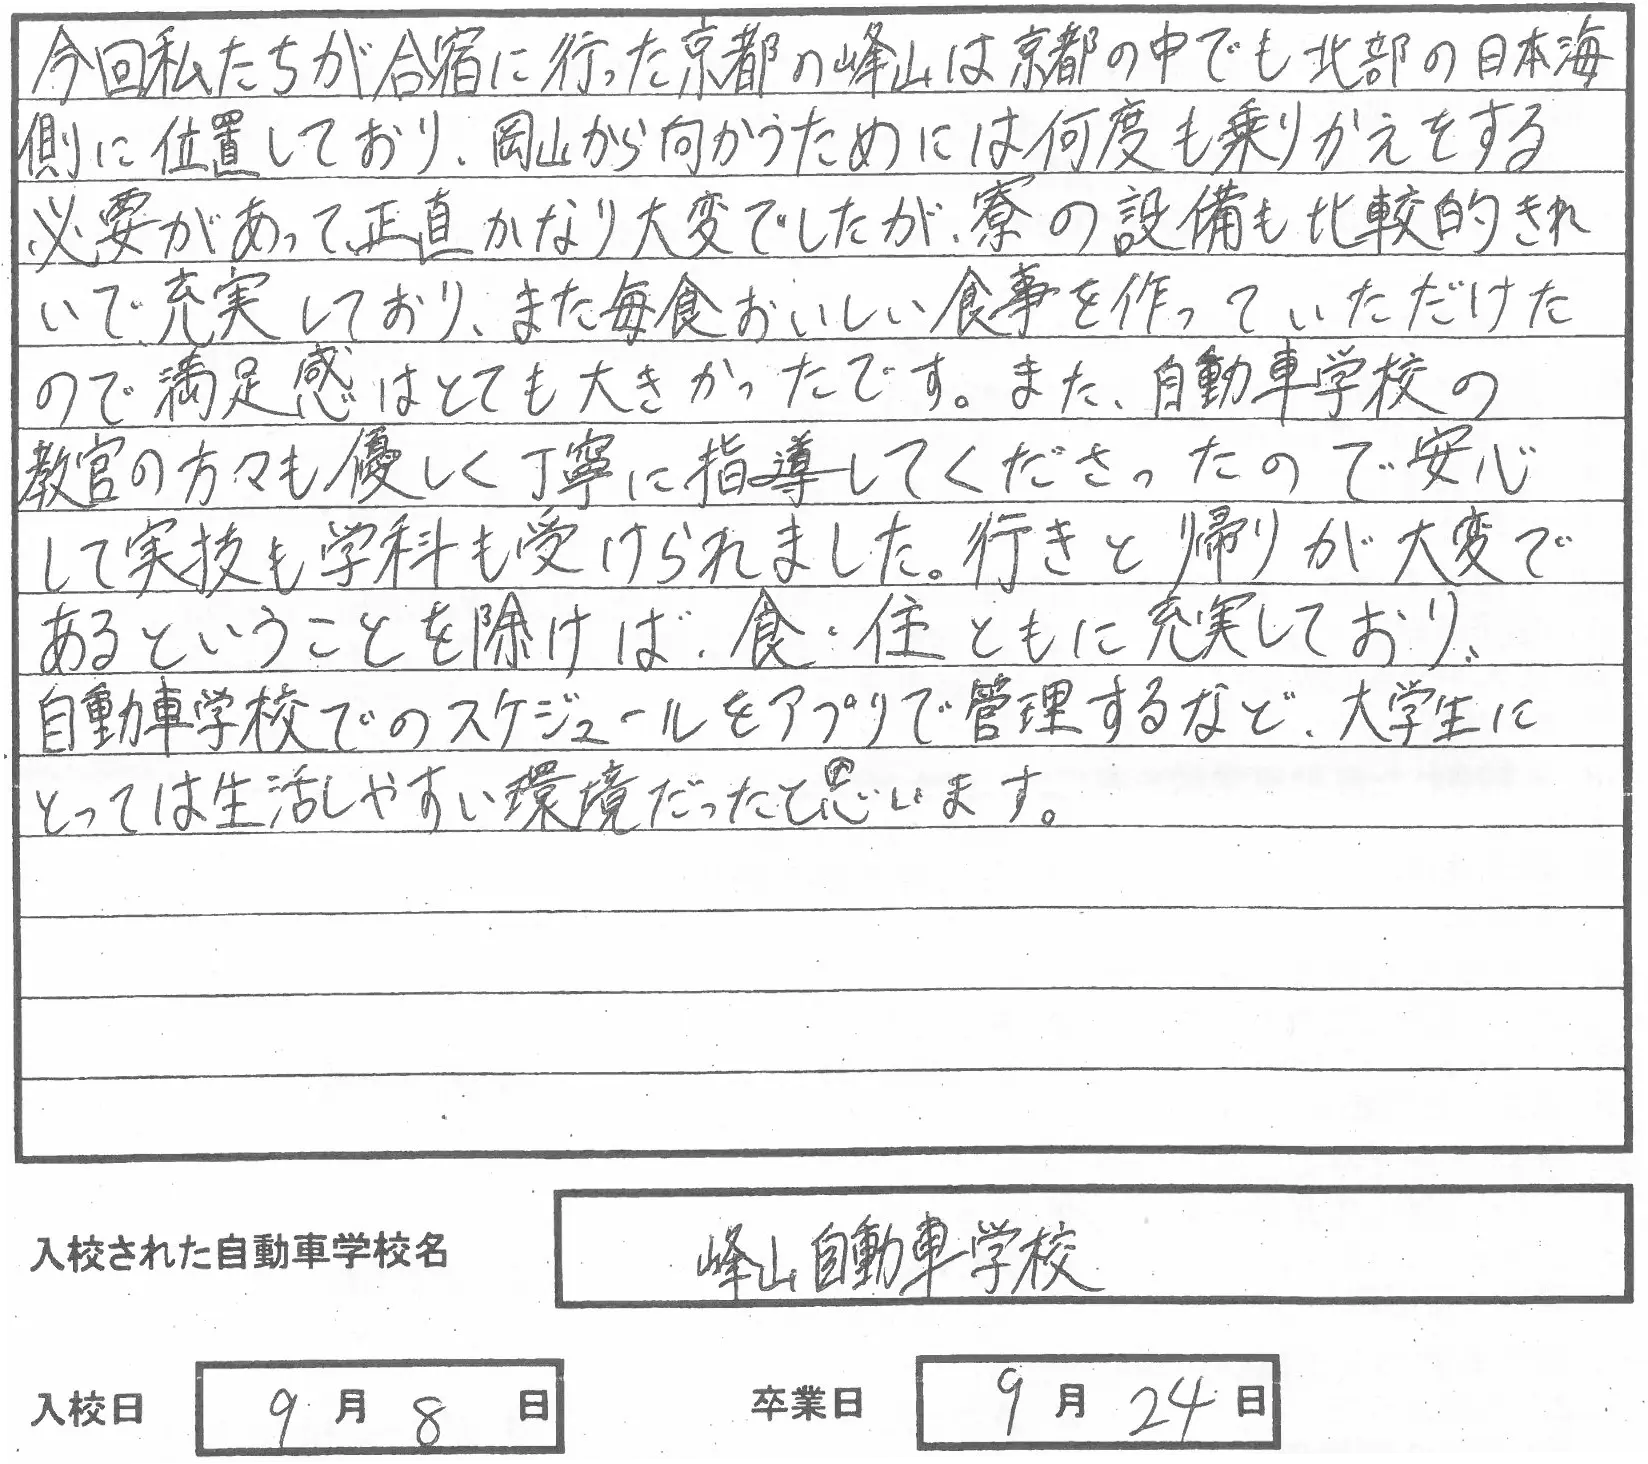 今回私たちが合宿に行った京都の峰山は京都の中でも北部の日本海
側に位置しており、岡山から向かうためには何度も乗りかえをする
必要があって、正直かなり大変でしたが、寮の設備も比較的きれ
いで、充実しており、また毎食おいしい食事を作っていただけた
ので満足感はとても大きかったです。また、自動車学校の
教官の方々も優しく丁寧に指導してくださったので安心
して実技も学科も受けられました。行きと帰りが大変で
あるということを除けば、食・住ともに充実しており、
自動車学校でのスケジュールをアプリで管理するなど、大学生に
とっては生活しやすい環境だったと思います。
入校された自動車学校名 峰山自動車学校
入校日 9月8日 卒業日 9月24日